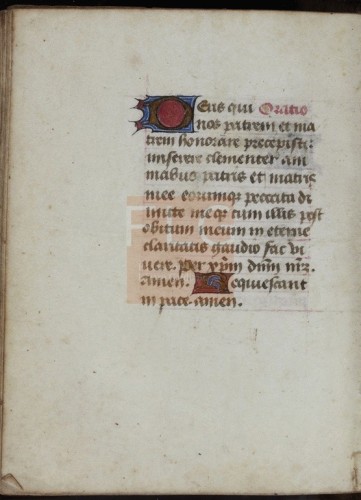 Deus qui Oratio
nos patrem et ma
trem honorare precepisti:
miserere clementer ani
mabus patris et matris
mee eorumqz peccata di
mitte meqz cum illis post
obitum meum in eterne
claritatis gaudio fac vi
uere. Per xpm dnm nrm.
amen. Requiescant
in pace. amen.